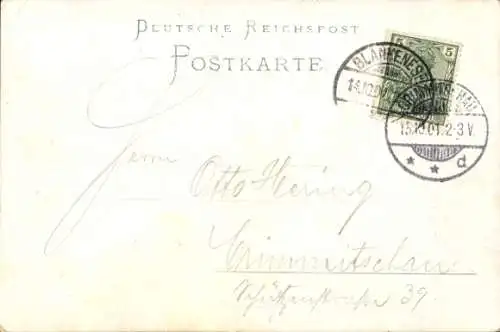 DEUTSCHE REICHSPOST
POSTKARTE
5 5
BLANKENESE
14.10.01
CRIMMITSCHAU
15.10.01. 2-3 V.
* * d
Herrn
Otto Hering
Crimmitschau
Schützenstrasse 39.